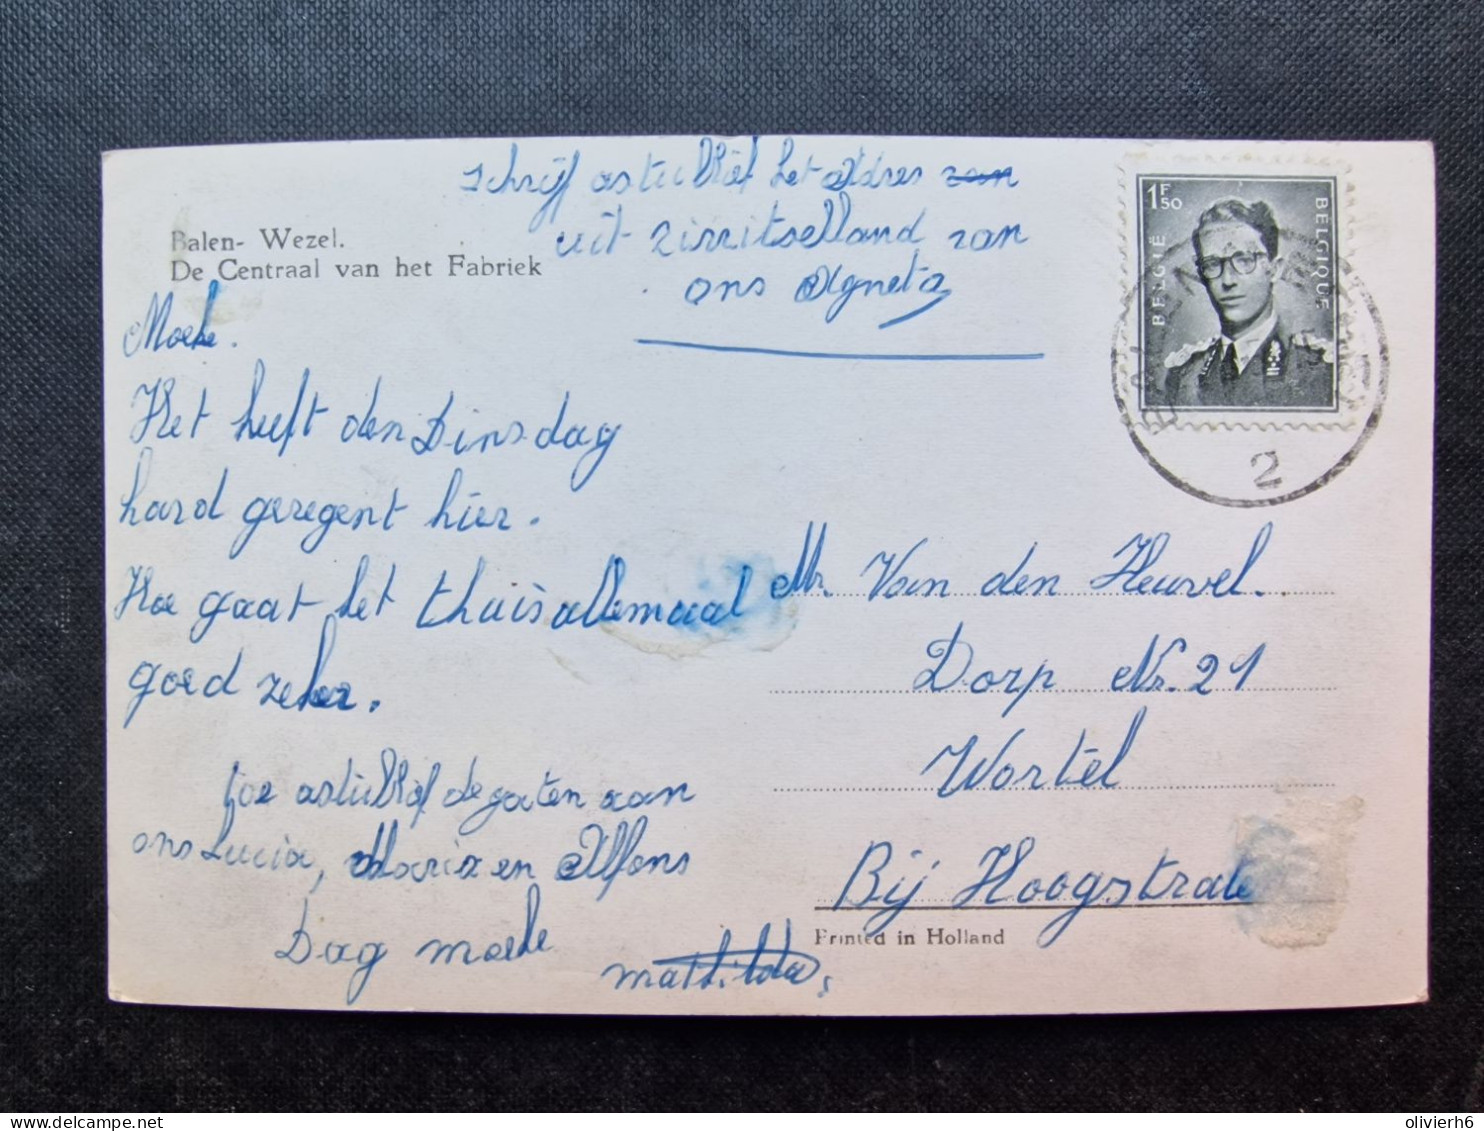 schrijf astublief het adres van
uit zwitselland van
ons Agneta
Balen- Wezel.
De Centraal van het Fabriek
Moeke.
Het heeft den Dinsdag
hard geregent hier.
Hoe gaat het thuis allemaal
goed zeker.
toe astublief de groeten aan
ons Lucia, Maria en Alfons
Dag moeke
mathilda,
1F50
BELGIË
BELGIQUE
2
Mr Van den Heuvel.
Dorp Nr. 21
Wortel
Bij Hoogstrate
Printed in Holland
olivierh6